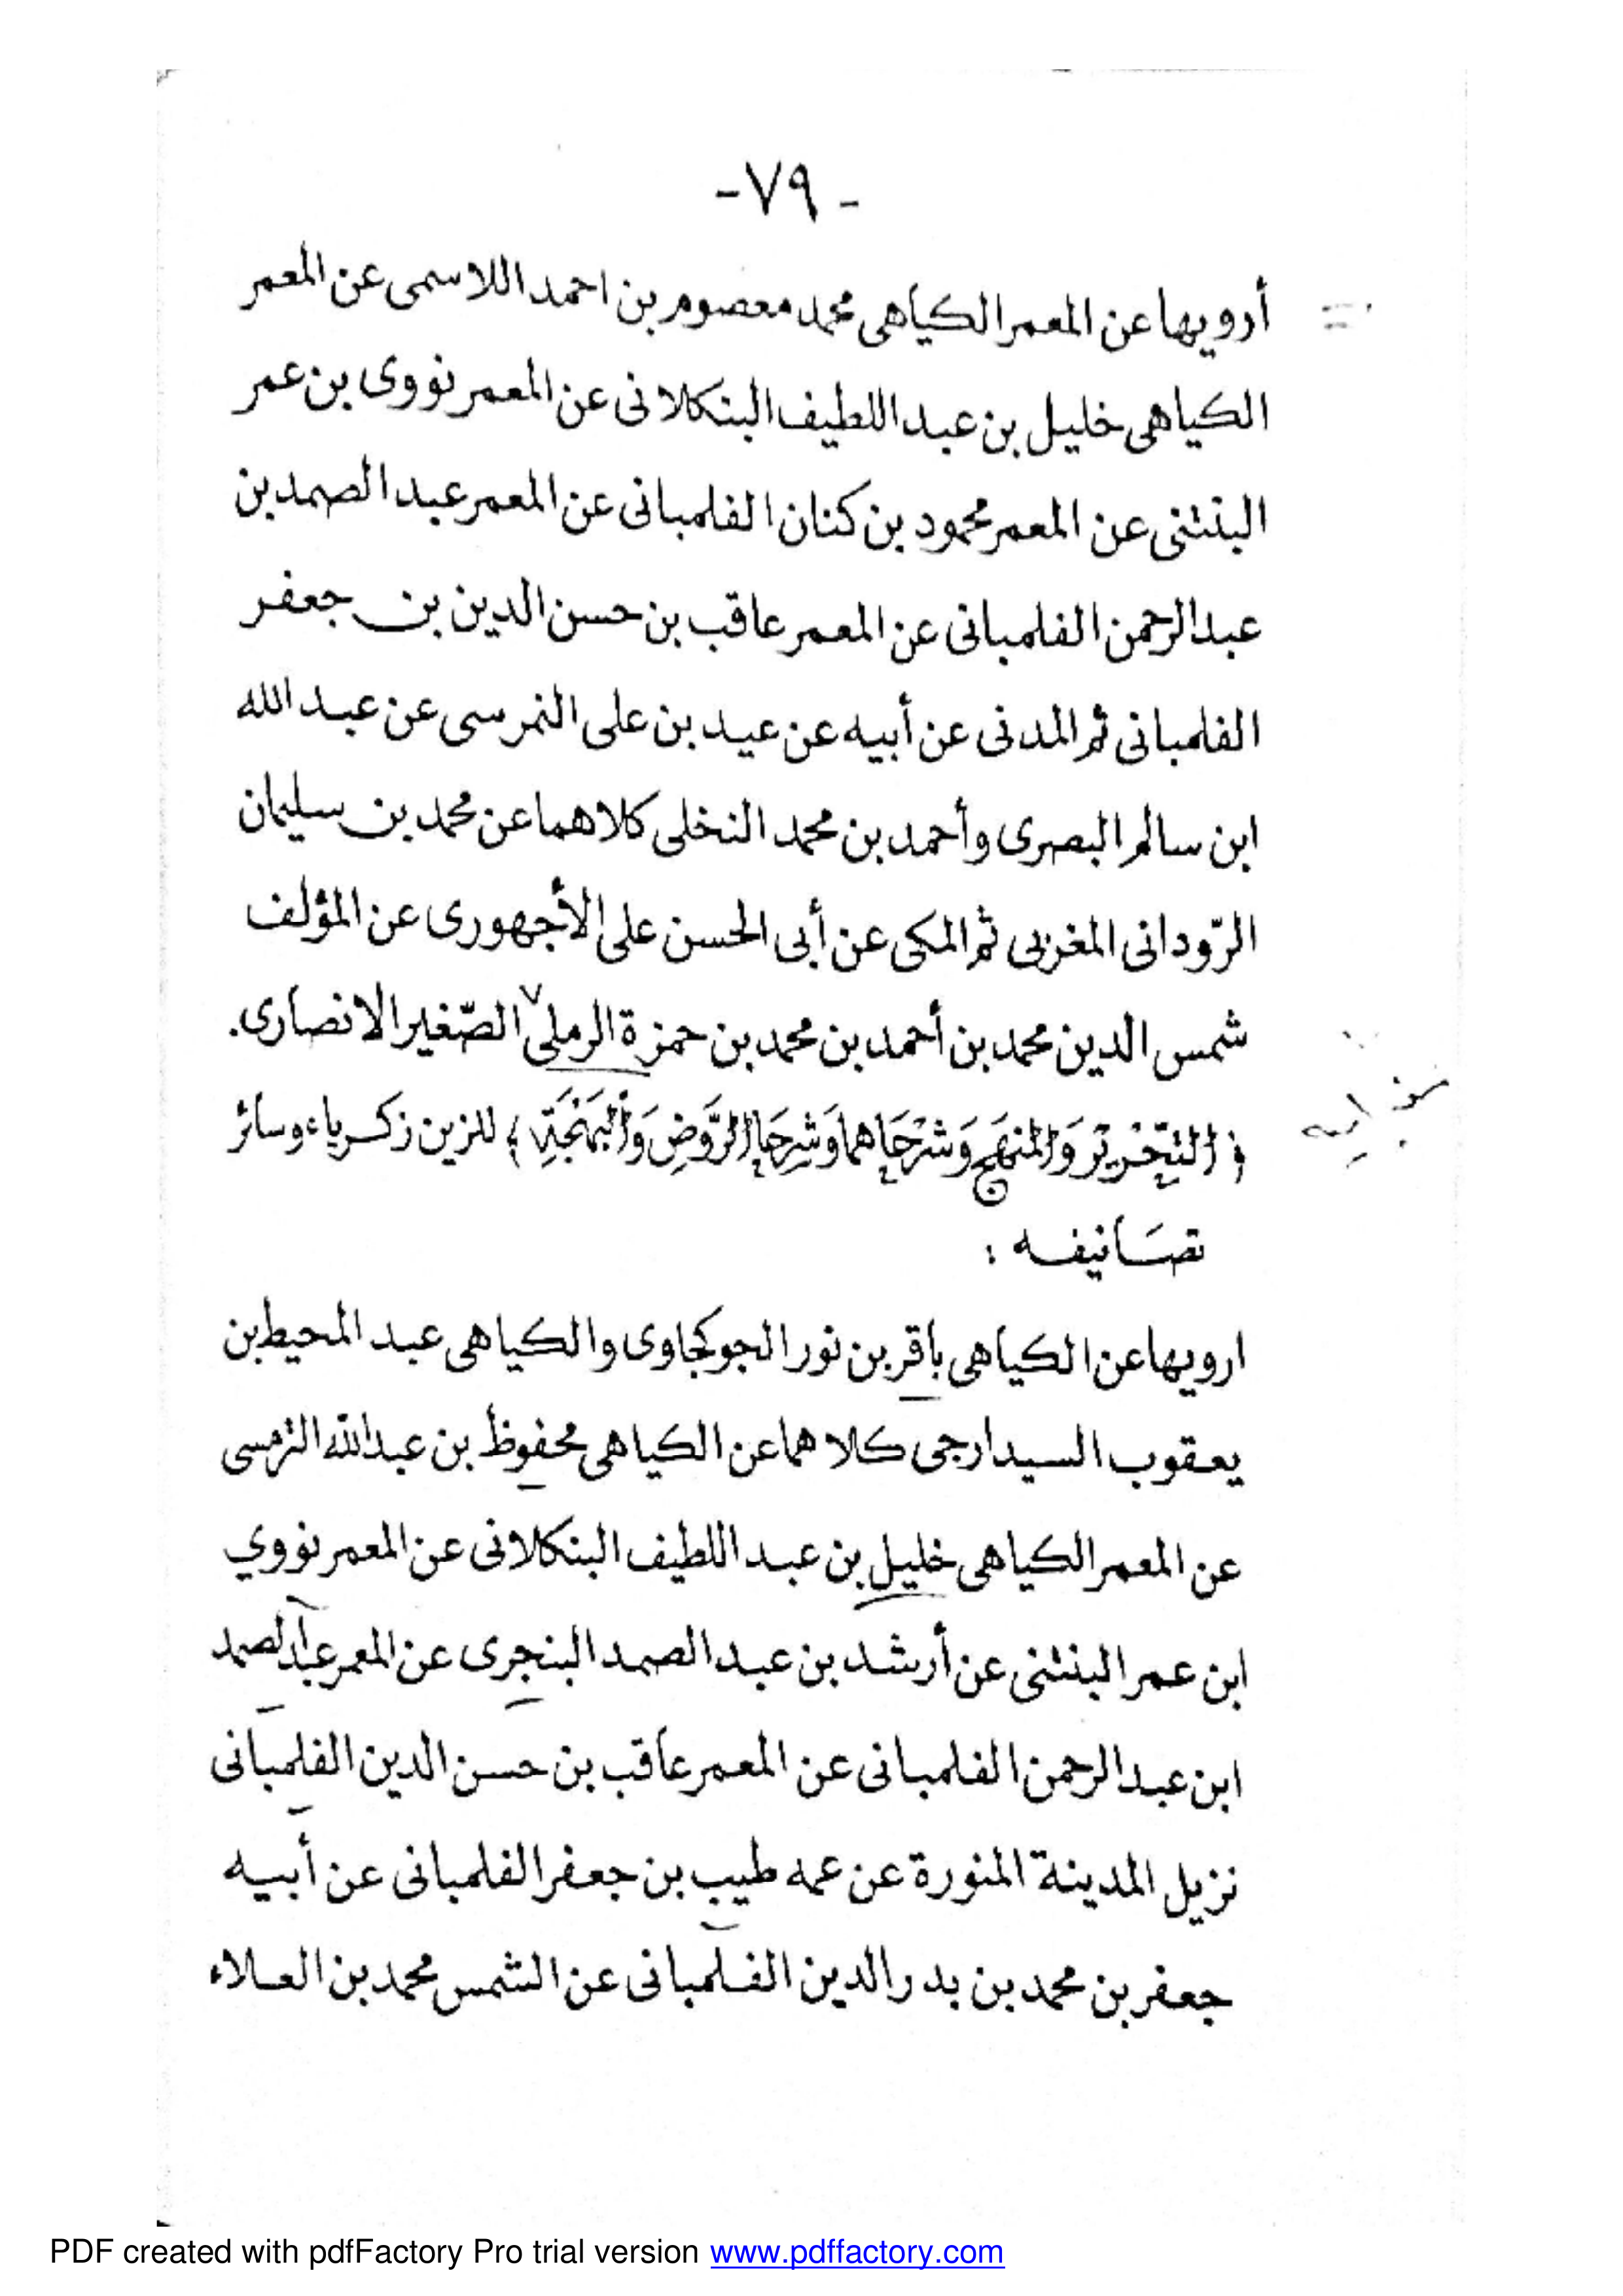 -٧٩-
أرويها عن المعمر الكياهى محمد معصوم بن احمد اللاسمى عن المعمر
الكياهى خليل بن عبد اللطيف البنكلانى عن المعمر نووى بن عمر
البنتنى عن المعمر محمود بن كنان الفلمبانى عن المعمر عبد الصمد بن
عبد الرحمن الفلمبانى عن المعمر عاقب بن حسن الدين بن جعفر
الفلمبانى ثم المدنى عن أبيه عن عيد بن على النمرسى عن عبد الله
ابن سالم البصرى وأحمد بن محمد النخلى كلاهما عن محمد بن سليمان
الرّودانى المغربى ثم المكى عن أبى الحسن على الأجهورى عن المؤلف
شمس الدين محمد بن أحمد بن محمد بن حمزة الرملى الصّغير الانصارى.
﴿ التَّحْرِيْرَ وَالمنهَج وَشَرْحَاهما وَشرحَا الرَّوضِ وَالْبَهْجَةِ ﴾ للزين زكرياء وسائر
تصَانيفه :
ارويها عن الكياهى باقر بن نور الجوكجاوى والكياهى عبد المحيط بن
يعقوب السيدارجى كلاهما عن الكياهى محفوظ بن عبد الله الترمسى
عن المعمر الكياهى خليل بن عبد اللطيف البنكلانى عن المعمر نووي
ابن عمر البنتنى عن أرشد بن عبد الصمد البنجرى عن المعمر عبد الصمد
ابن عبد الرحمن الفلمبانى عن المعمر عاقب بن حسن الدين الفلمبانى
نزيل المدينة المنورة عن عمه طيب بن جعفر الفلمبانى عن أبيه
جعفر بن محمد بن بدر الدين الفلمبانى عن الشمس محمد بن العلاء
PDF created with pdfFactory Pro trial version www.pdffactory.com